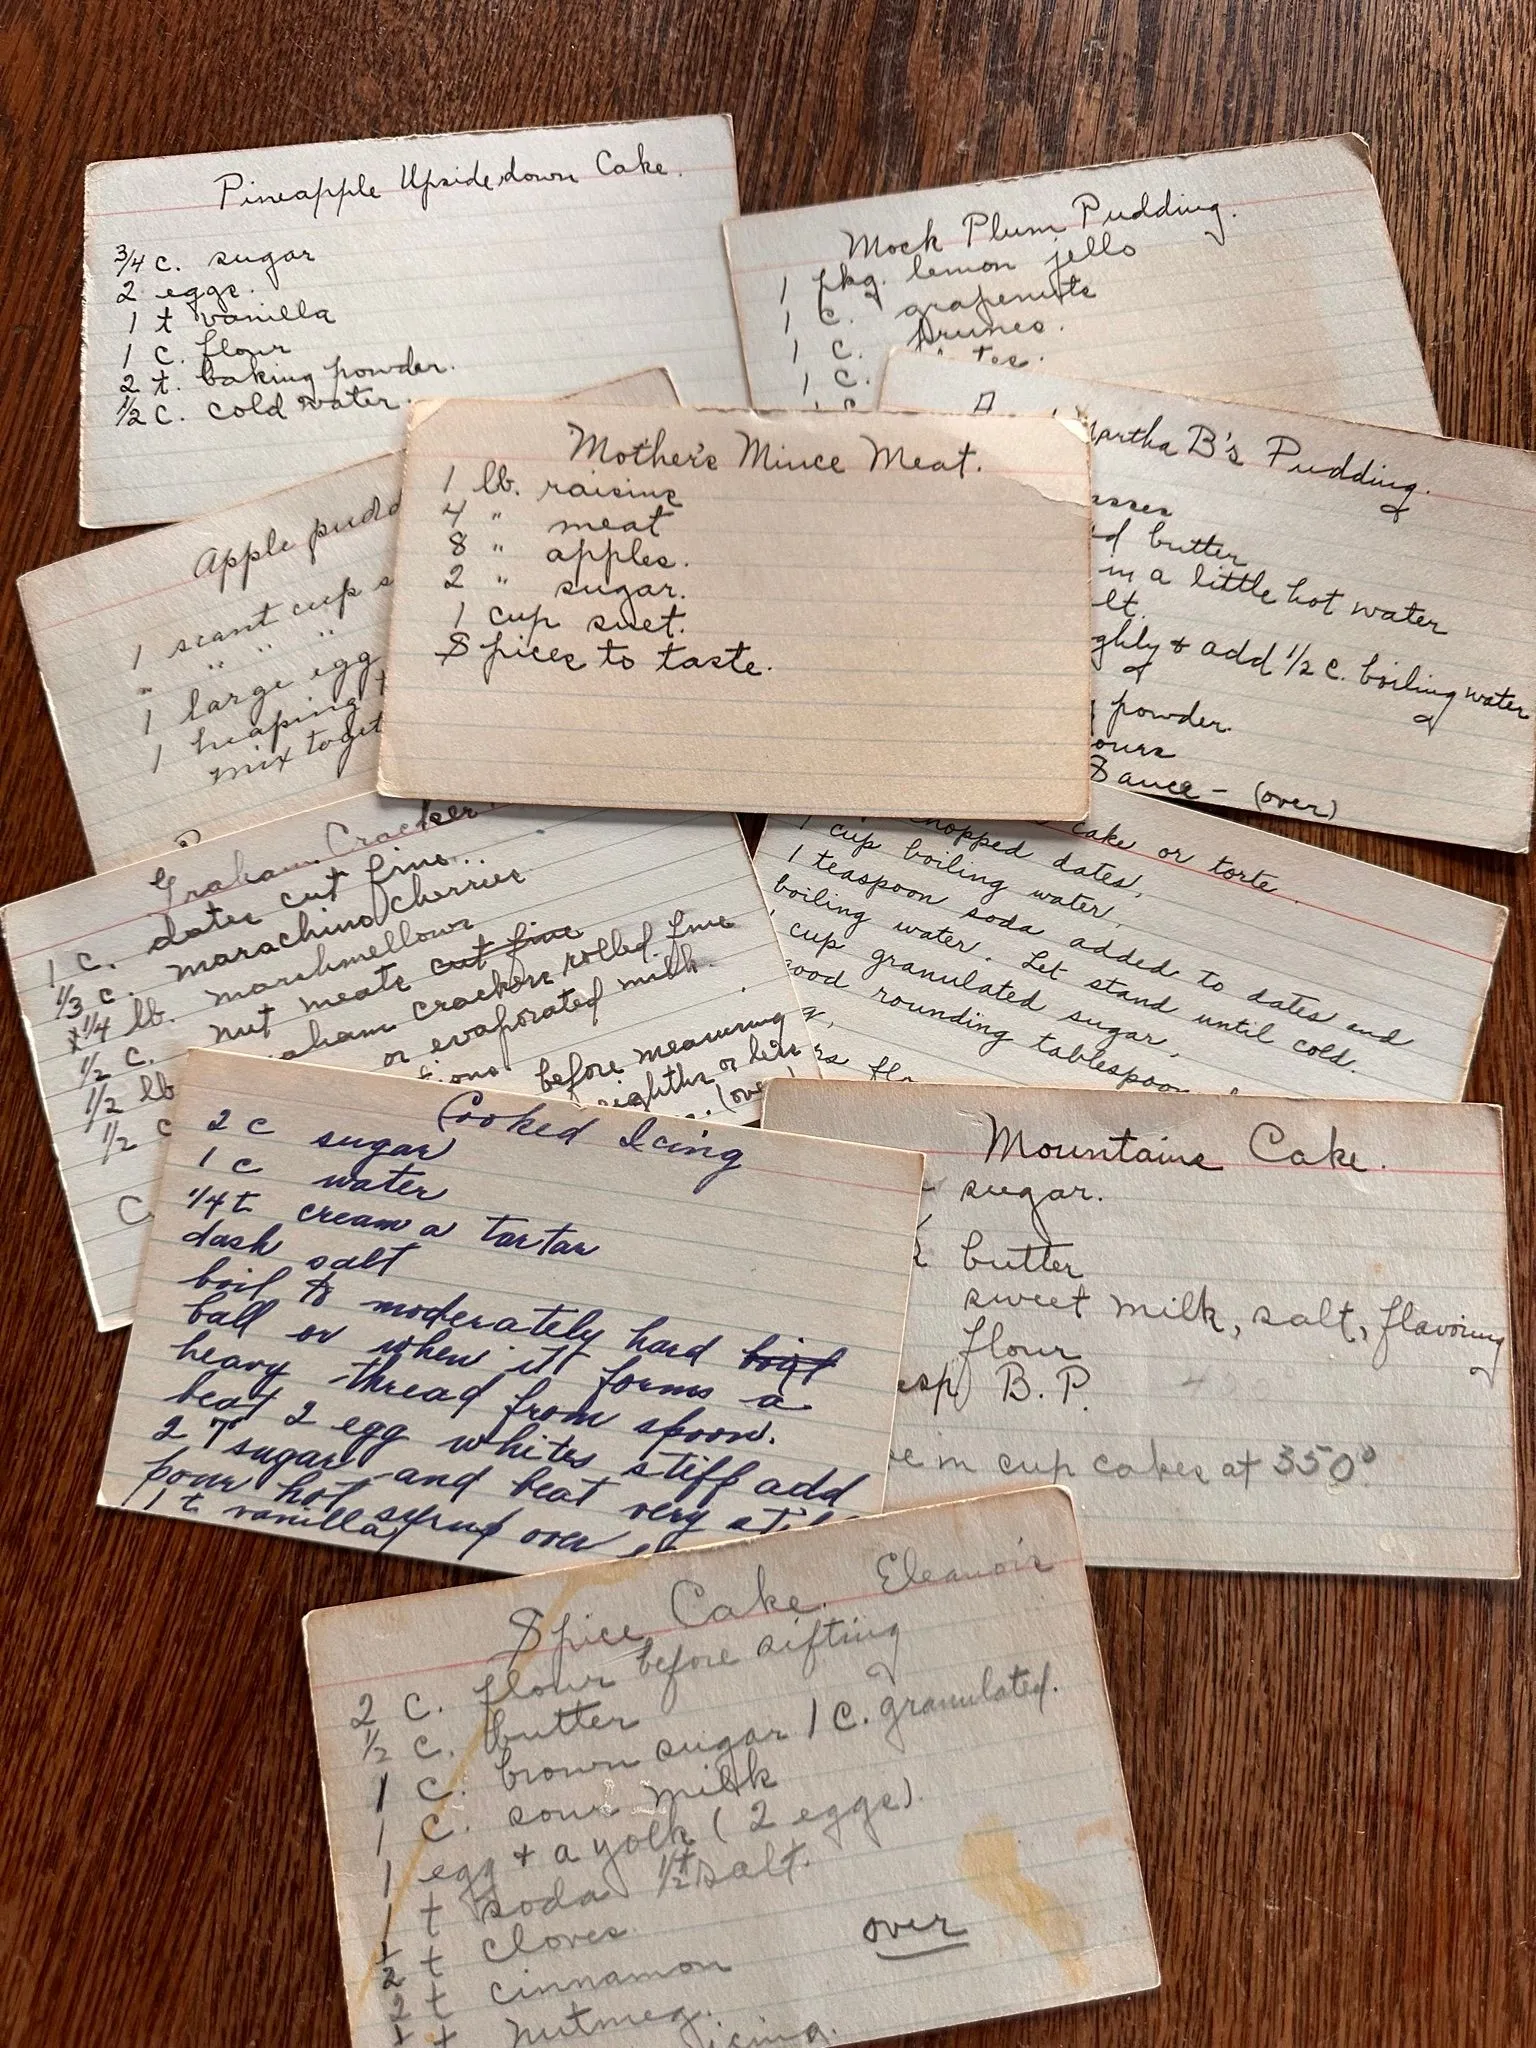 Pineapple Upside down Cake.
3/4 c. sugar
2 eggs.
1 t vanilla
1 c. flour
2 t. baking powder.
1/2 c. cold water.
Mock Plum Pudding.
1 pkg. lemon jello
1 c. grapenuts
1 c. prunes.
1 c.
Mother's Mince Meat.
1 lb. raisins
4 " meat
8 " apples.
2 " sugar.
1 cup suet.
Spices to taste.
Martha B's Pudding.
butter
in a little hot water
& add 1/2 c. boiling water
powder.
Sauce - (over)
Apple
1 scant cup
" " "
1 large egg
1 heaping
mix
Graham Cracker
1 c. dates cut fine..
1/3 c. marachino cherries
x 1/4 lb. marshmellows
1/2 c. nut meats cut fine
1/2 lb crackers rolled fine
1/2 c or evaporated milk.
before measuring
or less
cake or torte.
chopped dates,
1 cup boiling water,
1 teaspoon soda added to dates and
boiling water. Let stand until cold.
cup granulated sugar,
rounding tablespoon
Cooked Icing
2 c sugar
1 c water
1/4 t cream a tartar
dash salt
boil to moderately hard boil
ball or when it forms a
heavy thread from spoon.
beat 2 egg whites stiff add
2 T sugar and beat very
pour hot syrup over
1 t vanilla
Mountain Cake.
sugar.
butter
sweet milk, salt, flavoring
flour
B.P.
in cup cakes at 350°
Spice Cake. Eleanoir
2 c. flour before sifting
1/2 c. butter
1 c. brown sugar 1 c. granulated.
1 c. sour milk
1 egg + a yolk (2 eggs).
1 t soda 1/2 t salt.
1/2 t cloves.
2 t cinnamon
t nutmeg.
icing.
over